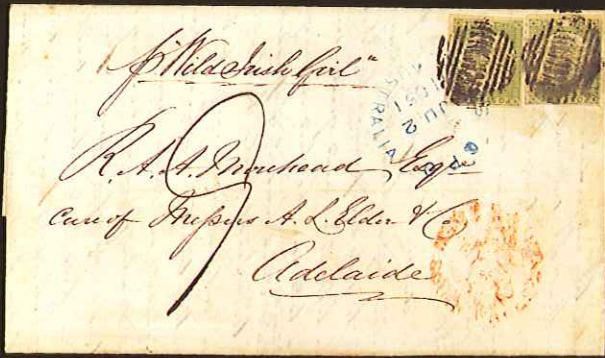 pr "Wild Irish Girl"
R. A. A. Morehead Esqre
care of Messrs A. L. Elder & Co
Adelaide
9
AUSTRALIA
JU 2
1851